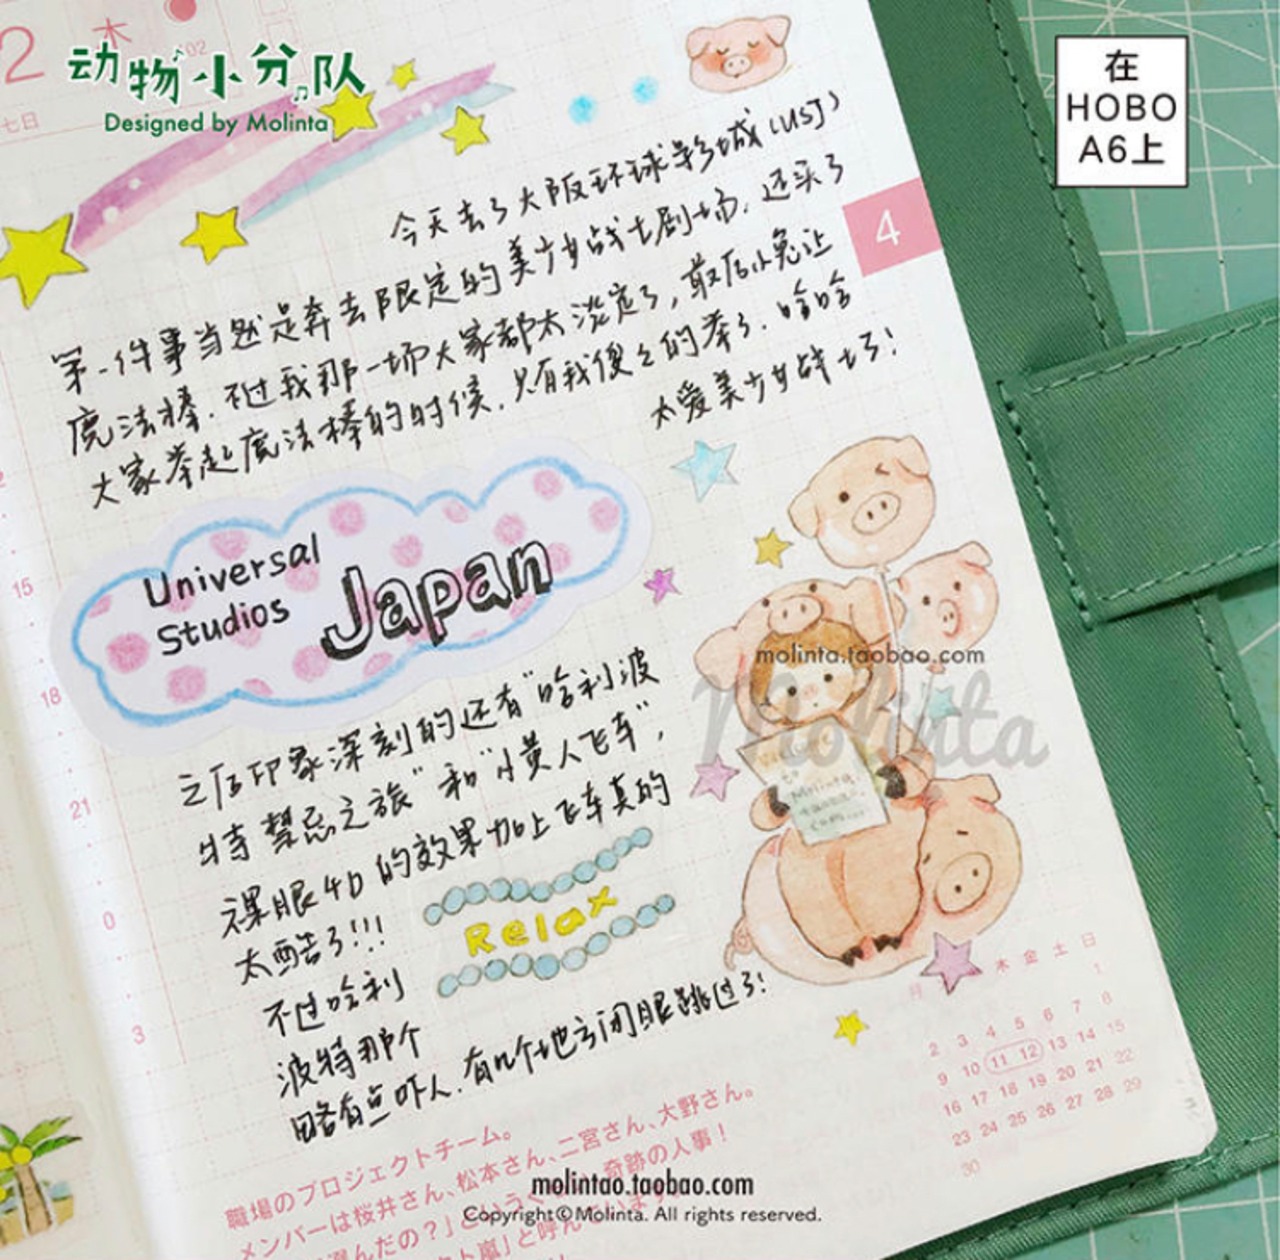 2
木
七日
动物小分队
Designed by Molinta
在
HOBO
A6上
4
今天去了大阪环球影城(USJ)
第一件事当然是奔去限定的美少女战士剧场.还买了
魔法棒.不过我那一场大家都太淡定了,最后小兔让
大家举起魔法棒的时候.只有我傻乎的举了.哈哈
太爱美少女战士了!
Universal
Studios
Japan
molinta.taobao.com
Molinta
之后印象深刻的还有"哈利波
特禁忌之旅"和"小黄人飞车",
裸眼4D的效果加上飞车真的
太酷了!!!
Relax
不过哈利
波特那个
略有点吓人.有几个地方闭眼跳过了!
15
18
21
0
3
木 金 土 日
1
2 3 4 5 6 7 8
9 10 11 12 13 14 15
16 17 18 19 20 21 22
23 24 25 26 27 28 29
30
職場のプロジェクトチーム。
メンバーは桜井さん、松本さん、二宮さん、大野さん。
奇跡の人事!
molintao.taobao.com
Copyright©Molinta. All rights reserved.